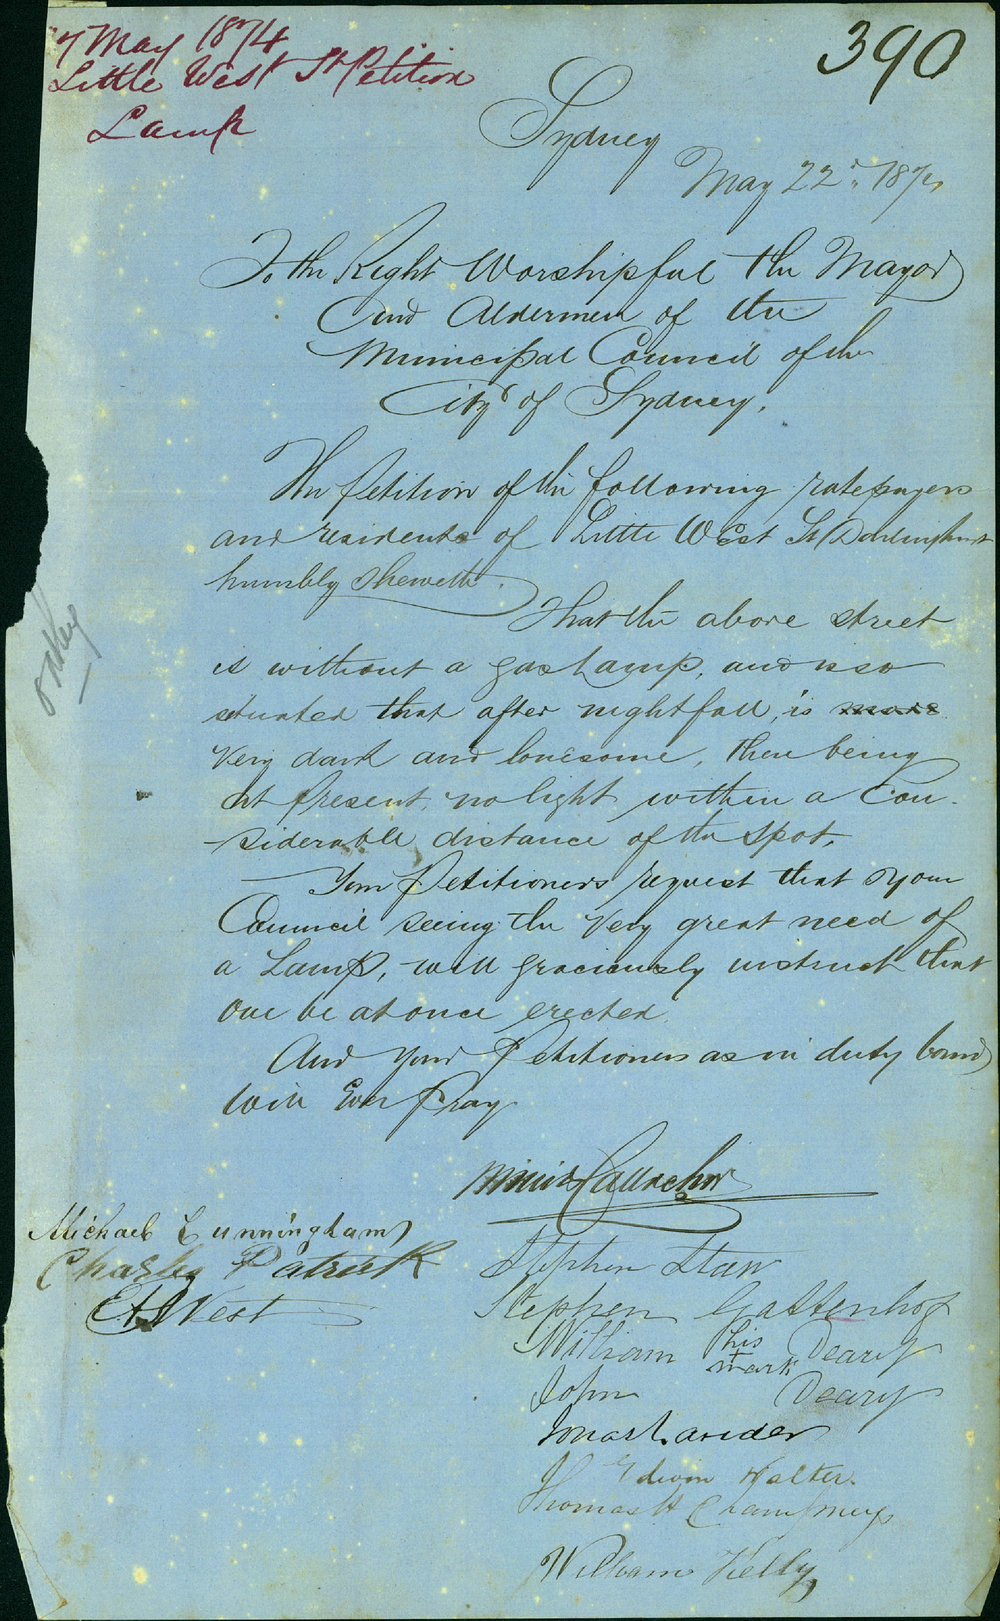 7 May 1874
Little West St Petition
Lamp
390
Sydney
May 22nd 1874
To the Right Worshipful the Mayor
and Aldermen of the
Municipal Council of the
City of Sydney.
The Petition of the following ratepayers
and residents of Little West St Darlinghurst
humbly sheweth.
That the above street
is without a gas Lamp, and is so
situated that after nightfall, is more
very dark and lonesome, there being
at present no light within a Con-
siderable distance of the spot.
Your Petitioners request that your
Council seeing the very great need of
a Lamp, will graciously instruct that
one be at once erected.
And your Petitioners as in duty bound
will Ever Pray
Michael Cunningham
Charley Patrick
West
Stephen
Stephen
William his mark Deary
John Deary
Edwin Walter
Thomas H Champneys
William Kelly